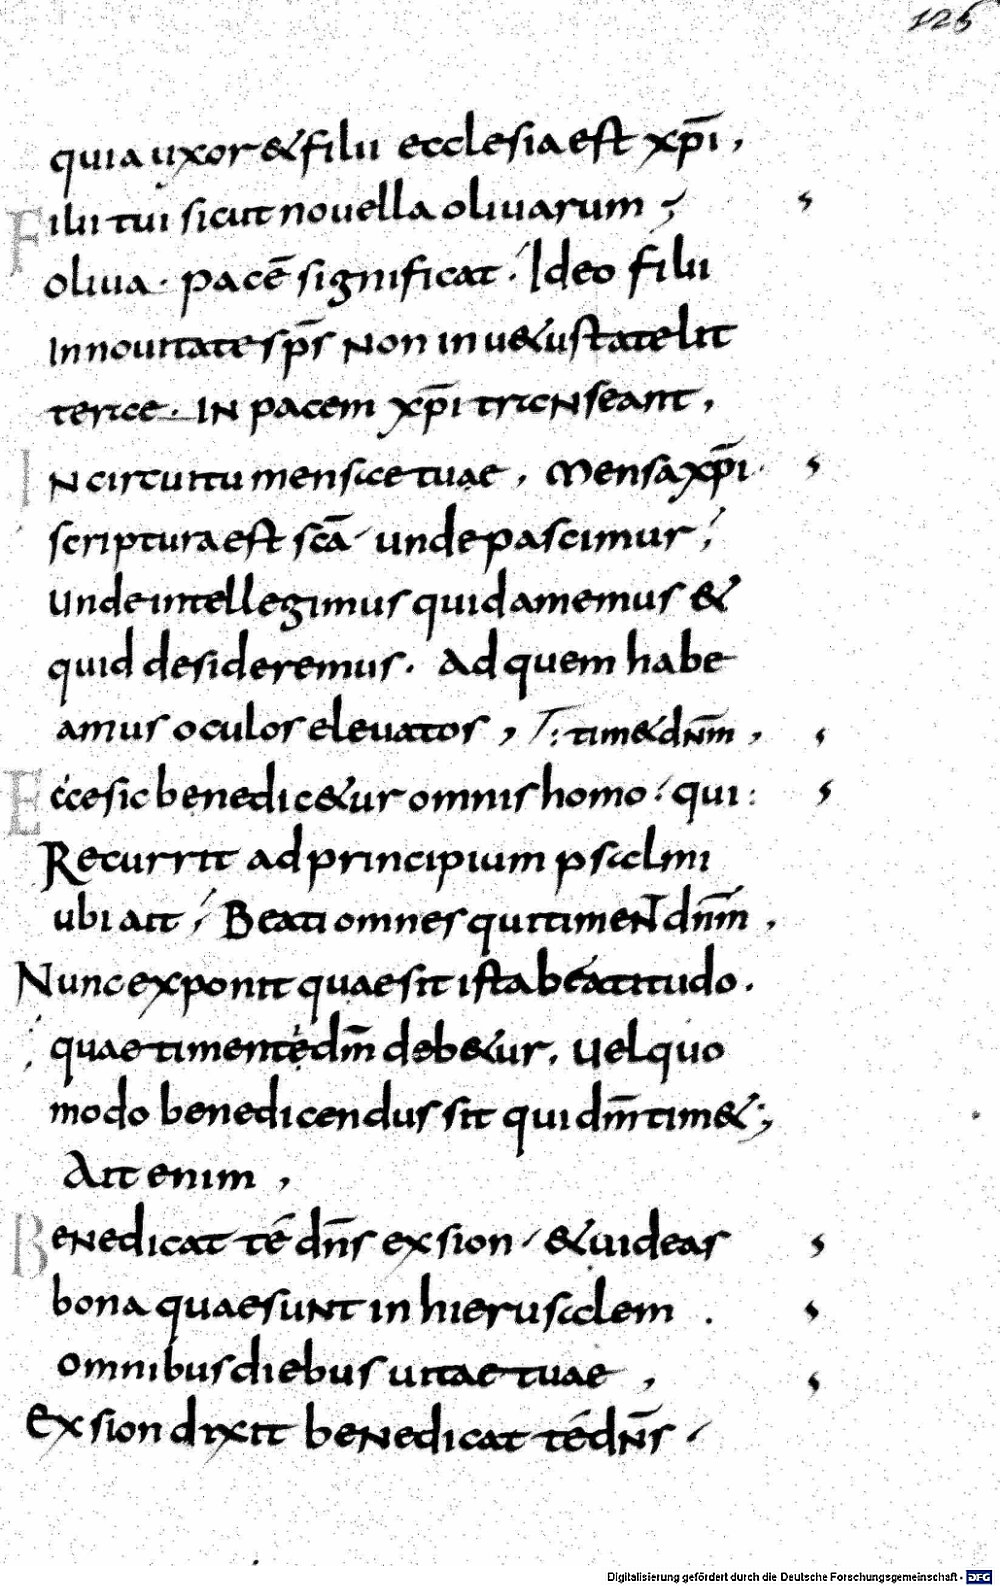 126
quia uxor & filii ecclesia est xp̄i,
Filii tui sicut nouella oliuarum;
oliua · pacē significat · Ideo filii
In nouitate sp̄s Non in u&ustate lit
terae · IN pacem xp̄i transeant,
IN circuitu mensae tuae, Mensa xp̄i ·
scriptura est scā unde pascimur;
Unde intellegimus quid amemus &
quid desideremus. Ad quem habe
amus oculos eleuatos, T: tim& dn̄m,
Ecce sic benedic&ur omnis homo: qui:
Recurrit ad principium psalmi
ubi ait: Beati omnes qui timeNT dn̄m,
Nunc exponit quae sit ista beatitudo.
quae timente dm̄ deb&ur, Uel quo
modo benedicendus sit qui dm̄ tim&;
Ait enim,
BeNedicat te dn̄s ex sion & uideas
bona quae suNT in hierusalem.
omnibus diebus uitae tuae,
Ex sion dixit beNedicat te dn̄s
Digitalisierung gefördert durch die Deutsche Forschungsgemeinschaft - DFG